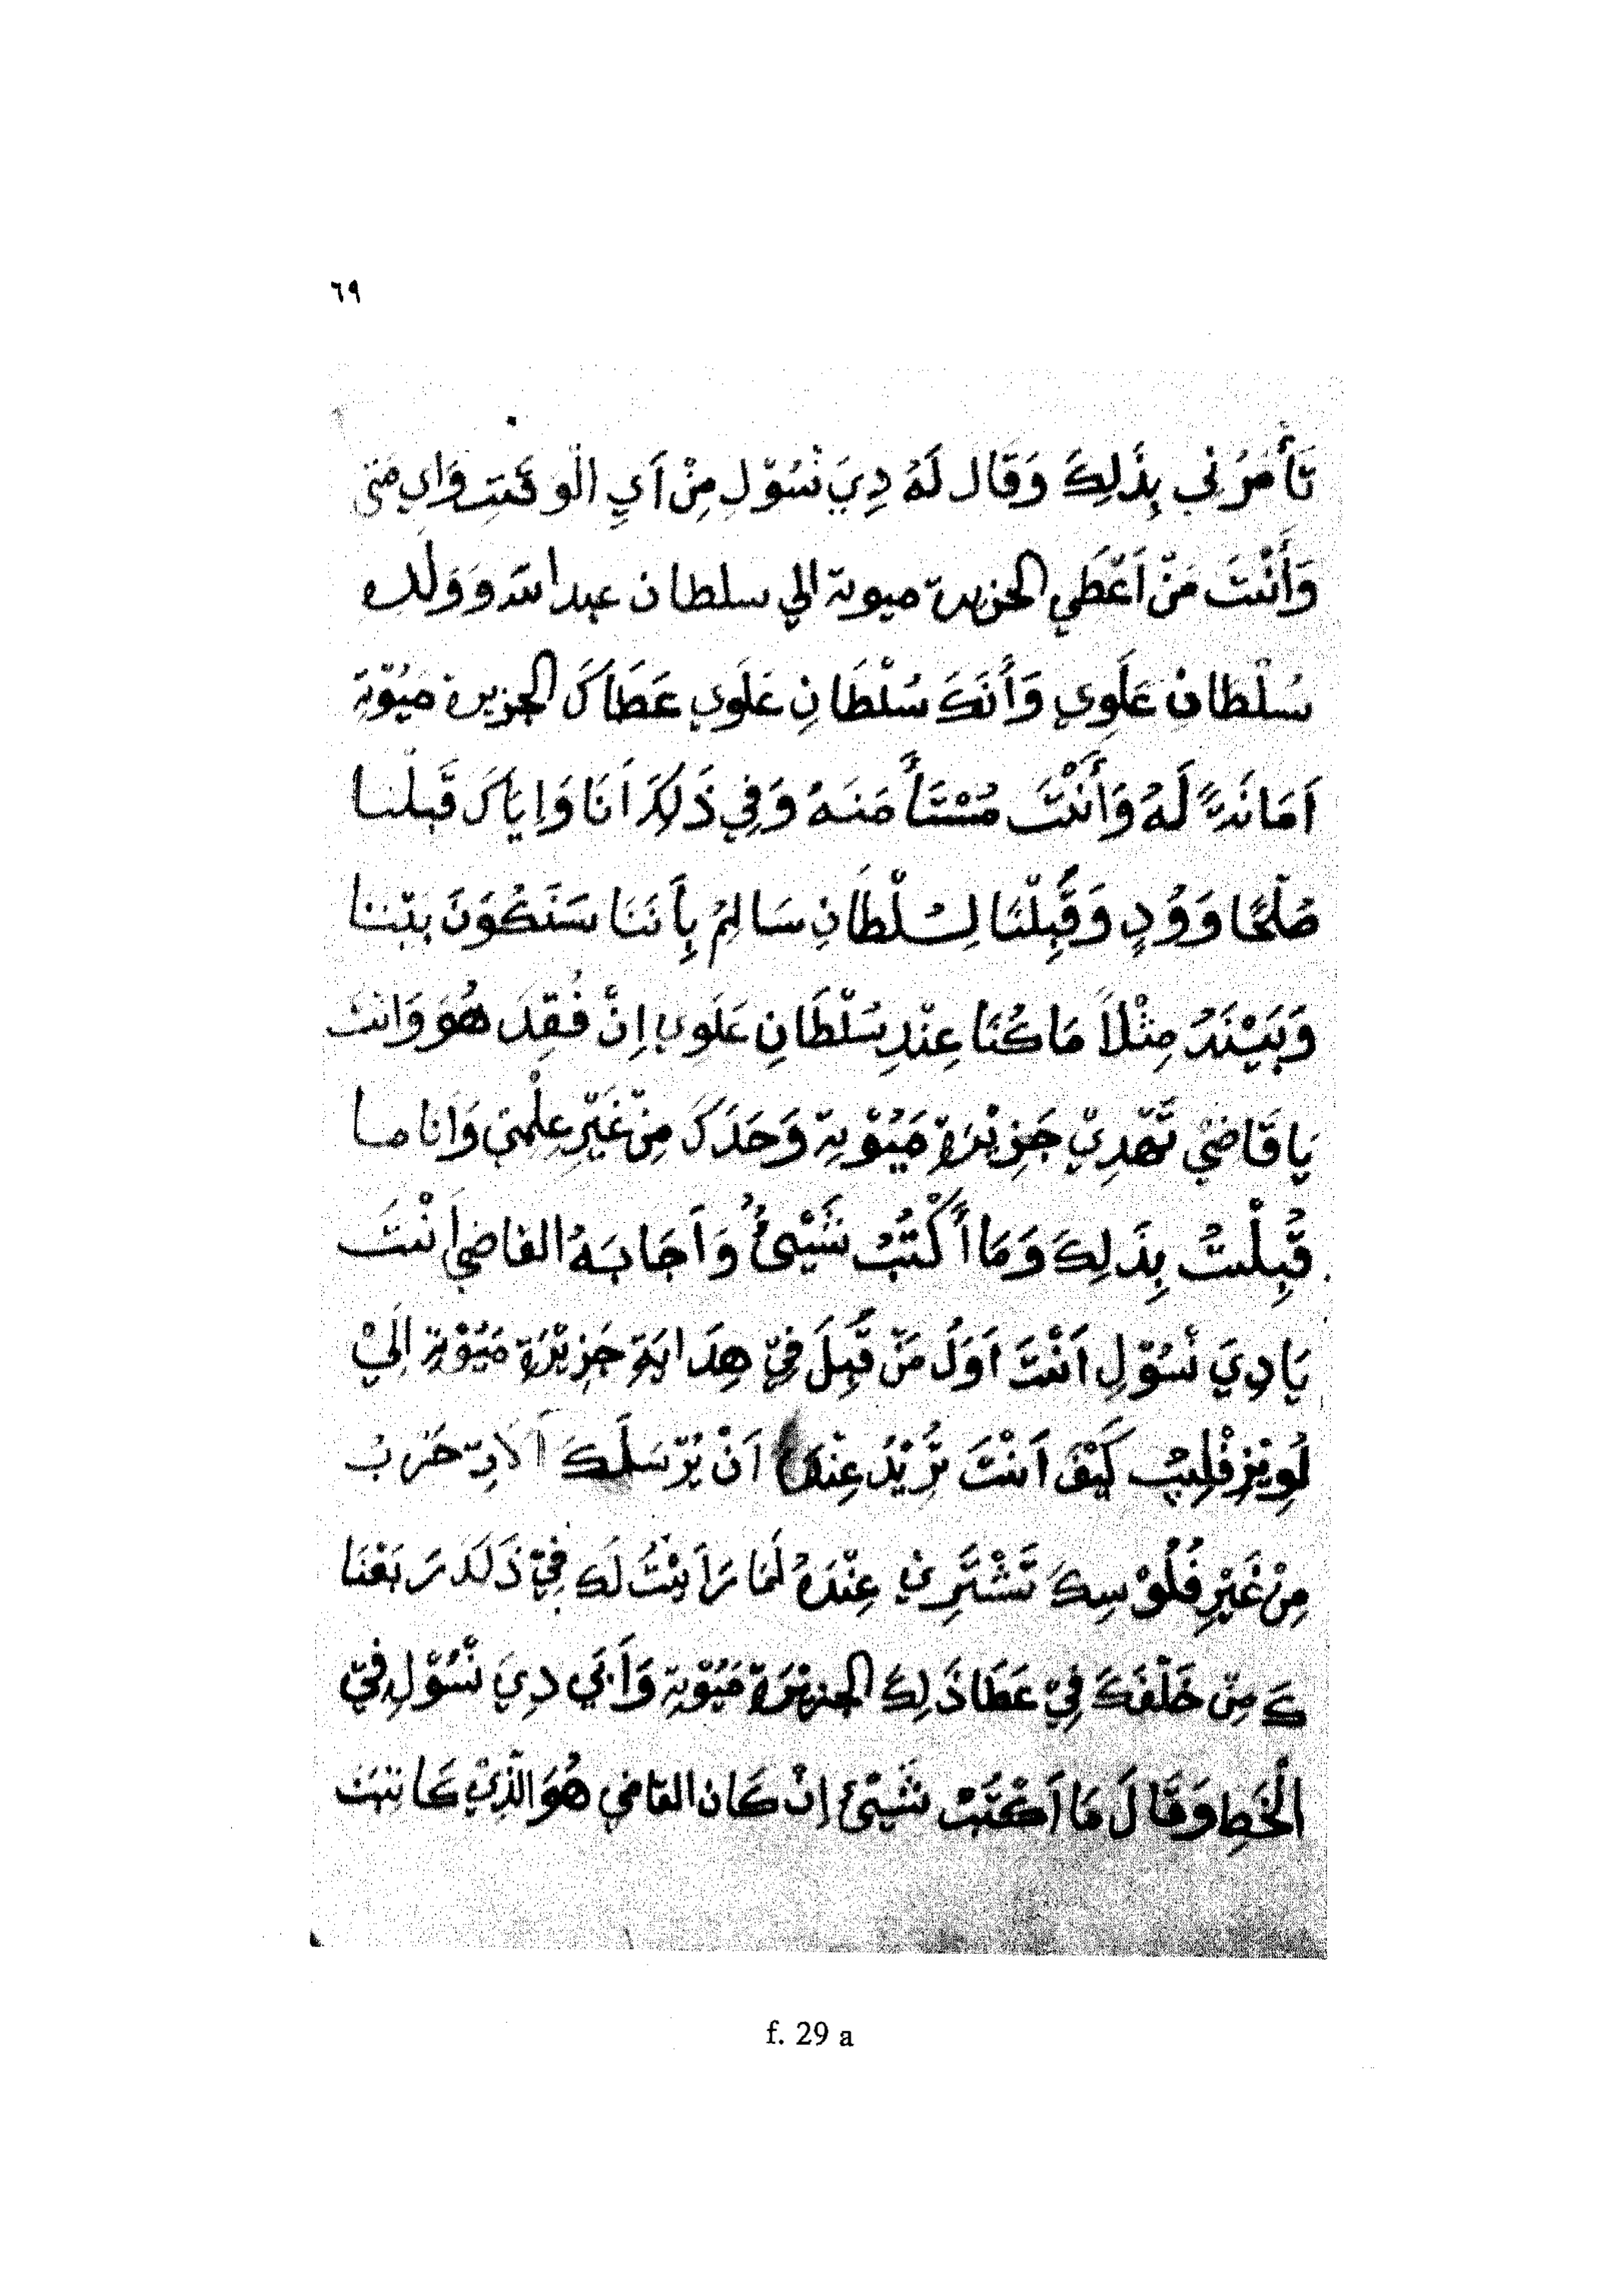 ٦٩
تَأْمُرُنِي بِذَلِكَ وَقَالَ لَهُ دِيَ نْسُوْلِ مِنْ اَيِ الْوَقْتِ وَاي مَتى
وَأَنْتَ مَنْ اَعْطَي الجزيرة ميوتة الي سلطان عبد الله وولده
سُلْطانِ عَلَوِي وَأَنَكَ سُلْطَانِ عَلَوِي عَطَاكَ الجزيرة مَيُوْتِة
اَمَانَةً لَهُ وَأَنْتَ مُسْتَأْمَنَهُ وَفِي ذَلِكَ اَنَا وَاِيَاكَ قَبِلْنا
صُلْحًا وَوُدٍ وَقَبِلْنَا لِسُلْطَانِ سَالِمُ بِأَنَنَا سَنَكُوَنَ بيْننا
وَبَيْنَهُ مِثْلاَ مَا كُنَا عِنْدِ سُلْطَانِ عَلَوِي اِنْ فُقِدَ هُوَ وَانتَ
يَا قَاضِيْ تَهْدِيْ جَزِيْرَة مَيُوْتِة وَحَدَكَ مِنْ غَيْرِ عِلْمِيْ وَاَنا ما
قَبِلْتُ بِذَلِكَ وَمَا اَكْتُبُ شَيْئُ وَاَجَابَهُ القاضي اَنْتَ
يَا دِيَ نْسُوْلِ اَنْتَ اَوَلُ مَنْ قَبِلَ فِيْ هِدَايَةِ جَزِيْرَة مَيُوْتِة اِلَيْ
لُوِيْزِ فْلِيبُ كَيْفَ اَنْتَ تُرِيْدُ عِنْدَهُ اَنْ يُرْسَلَكَ آلاَتِ حَرْبُ
مِنْ غَيْرِ فُلُوْسِكَ تَشْتَرِي عِنْدَهُ لَمَا رَاَيْتُ لَكَ فِيْ ذَلَكَ رَبَعْنَا
كَ مِنْ خَلْفَكَ فِيْ عَطَا ذَلِكَ الجزيْرَة مَيُوْتِة وَأَبَي دِيَ نْسُوْلِ فِيْ
الْخَطِ وَقَالَ مَا اَكْتُبْ شَيْئ اِنْ كَان القاضي هُوَ الَّذِيْ كَاتبَت
f. 29 a